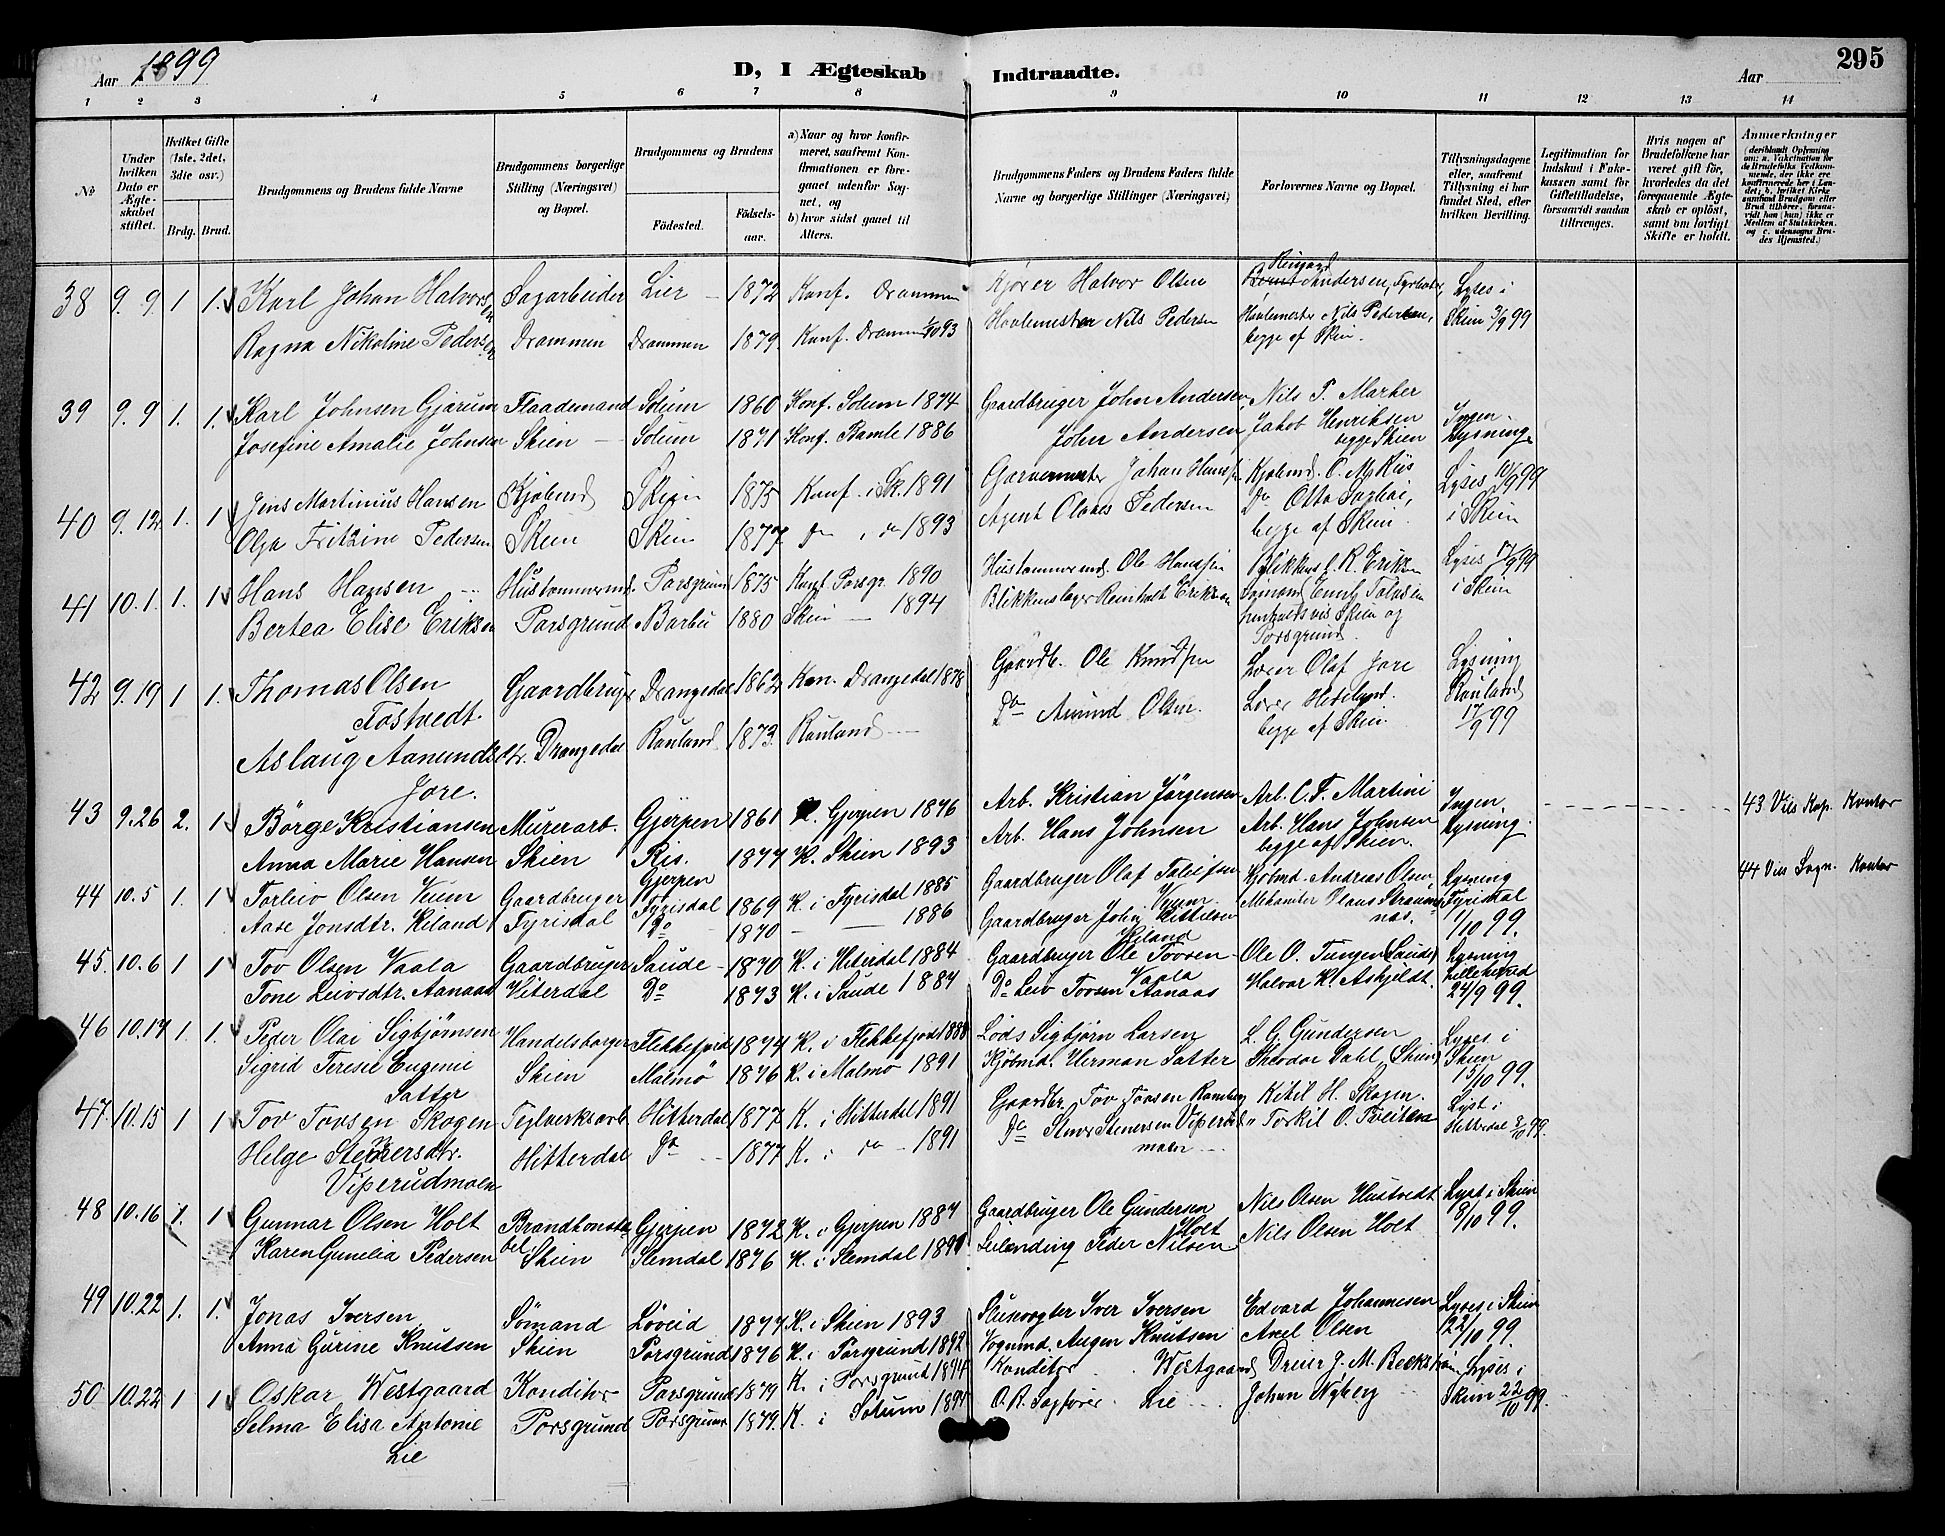 Aar 1899
D, I Ægteskab Indtraadte.
Aar
295
1 2 3 4 5 6 7 8 9 10 11 12 13 14
No
Under hvilken Dato er Ægteskabet stiftet.
Hvilket Gifte (1ste, 2det, 3die osv.)
Brdg. Brud.
Brudgommens og Brudens fulde Navne
Brudgommens borgerlige Stilling (Næringsvei) og Bopæl.
Brudgommens og Brudens
Fødested.
Fødselsaar.
a) Naar og hvor konfirmeret, saafremt Konfirmationen er foregaaet udenfor Sognet, og
b) hvor sidst gaaet til Alters.
Brudgommens Faders og Brudens Faders fulde Navne og borgerlige Stillinger (Næringsvei)
Forlovernes Navne og Bopæl.
Tillysningsdagene eller, saafremt Tillysning ei har fundet Sted, efter hvilken Bevilling.
Legitimation for Indskud i Enkekassen samt for Giftetilladelse, forsaavidt saadan tiltrænges.
Hvis nogen af Brudefolkene har været gift før, hvorledes da det foregaaende Ægteskab er opløst, samt om lovligt Skifte er holdt.
Anmærkninger (deriblandt Oplysning om: a. Vakcination for de Brudefolks Vedkommende, der ikke ere konfirmerede her i Landet; b. hvilket Kirkesamfund Brudgom eller Brud tilhører, forsaavidt han (hun) ikke er Medlem af Statskirken, og c. udensogns Brudes Hjemsted.)
38 9.9. 1 1. Karl Johan Halvorsen Sagarbeider Lier 1872 Konf. Drammen Kjører Halvor Olsen Andersen, Fyrbøter, Lyses i
Ragna Nikoline Pedersen Drammen Drammen 1879. Konf. Drammen 1/10 93 Høvlemester Nils Pedersen Høvlemester Nils Pedersen, Skien 3/9 99
begge af Skien.
39 9.9 1. 1. Karl Johnsen Gjærum Flaademand Solum 1860 Konf. Solum 1874 Gaardbruger John Andersen, Nils P. Marker Ingen
Josefine Amalie Johnsen Skien Solum 1871 Konf. Bamle 1886 John Andersen Jakob Henriksen Lysning
begge Skien
40 9.12 1. 1 Jens Martinius Hansen Kjøbmd Skien 1875 Konf. i Sk. 1891 Garvermester Johan Hanssen Kjøbmd. C. M. Kiis Lyses 10/9 99
Olga Fritzine Pedersen Skien Skien 1877 Do i do 1893 Agent Olaves Pedersen Do Otto i Skien
begge af Skien.
41 10.1. 1. 1 Hans Hansen Hustømmermd. Porsgrund 1875 Konf. Porsgr. 1890 Hustømmermd. Ole Hanssen Blikkensl. R. Eriksen Lyses 17/9 99
Bertea Elise Eriksen Porsgrund Barbu 1880 Skien 1894 Blikkenslager Reinholt Eriksen Sømand i Skien
henholdsvis Skien og
Porsgrund.
42 9.19 1 1. Thomas Olsen Gaardbruger Drangedal 1862 Kon. Drangedal 1878 Gaardb. Ole Knudsen Olaf Jore Lysning
Tostvedt.
Aslaug Aanundsdtr. Drangedal Rauland 1873. Rauland Do Olsen. begge af Skien. Rauland
17/9 99
Jore.
43 9.26 2. 1 Børge Kristiansen Murerarb. Gjerpen 1861 K. Gjerpen 1876 Arb. Kristian Jørgensen Arb. C. F. Martini Ingen 43 Vils Kap. Kontor
Anna Marie Hansen Skien Ris. Gjerpen 1877 K. Skien 1893 Arb. Hans Johnsen Arb. Hans Johnsen Lysning.
begge af Skien.
44 10.5 1. 1 Torleiv Olsen Veum Gaardbruger Fyrisdal 1869 K. i Fyrisdal 1885 Gaardbruger Olaf Veum Kjøbmd. Andreas Olsen, Lysning 44 Vils Sogn. Kontor
Aase Jonsdtr. Kiland Fyrisdal Do 1870 1886 Gaardbruger John Kittilsen Kiland Fyrisdal
1/10 99.
45. 10.6 1 1 Tov Olsen Vaala Gaardbruger Saude 1870 K. i Hiterdal 1884 Gaardbruger Ole Tovsen Vaala Ole O. Tungen (Saude) Lysning
Tone Leivsdtr. Aanaas Hiterdal Do 1873 K. i Saude 1887 Do Leiv Tovsen Aanaas Halvor K. Askjeldt. Lilleherad
24/9 99.
46 10.17 1. 1. Peder Olai Sigbjørnsen Handelsborger Flekkefjord 1874 K. i Flekkefjord 1888 Lods Sigbjørn Larsen L. G. Gundersen Lyses i
Sigrid Teresie Eugenie Skien Malmø 1876 K. i Malmø 1891 Kjøbmd. Herman Satter Theodor Dahl (Skien) Skien
Satter 15/10 99.
47. 10.15 1 1 Tov Tovsen Skogen Teglverksarb. Hitterdal 1877 K. i Hitterdal 1891 Gaardbr. Tov Tovsen Kitil H. Skogen. Lyst i
Helge Steners dtr. Hitterdal Do 1877 K. i do 1891 Do Stener Stenersen Viperudmoen Torkil O. Tveiten Hitterdal 8/10 99.
Viperudmoen
48 10.16 1. 1 Gunnar Olsen Holt Brandkonstabel Gjerpen 1872 K. i Gjerpen 1887 Gaardbruger Ole Gundersen Holt Nils Olsen Hustvedt Lyst i Skien
Karen Gunelia Pedersen Skien Slemdal 1876 K. i Slemdal 1891 Leilænding Peder Nilsen Nils Olsen Holt 8/10 99.
49 10.22 1. 1. Jonas Iversen Sømand Løveid 1877 K. i Skien 1893 Slusevogter Iver Iversen Edvard Johannesen Lyses i Skien
Anna Gurine Knutsen Skien Porsgrund 1876 K. i Porsgrund 1892 Vognmd. Augen Knutsen Axel Olsen 22/10 99.
50 10.22 1 1 Oskar Westgaard Konditor Porsgrund 1879 K. i Porsgrund 1894 Konditor Westgaard Dreier J. M. Lyses i
Selma Elisa Antonie Porsgrund Porsgrund 1879. K. i Solum 1894 O.R. Sagfører Lie Johan Nyberg Skien 22/10 99.
Lie